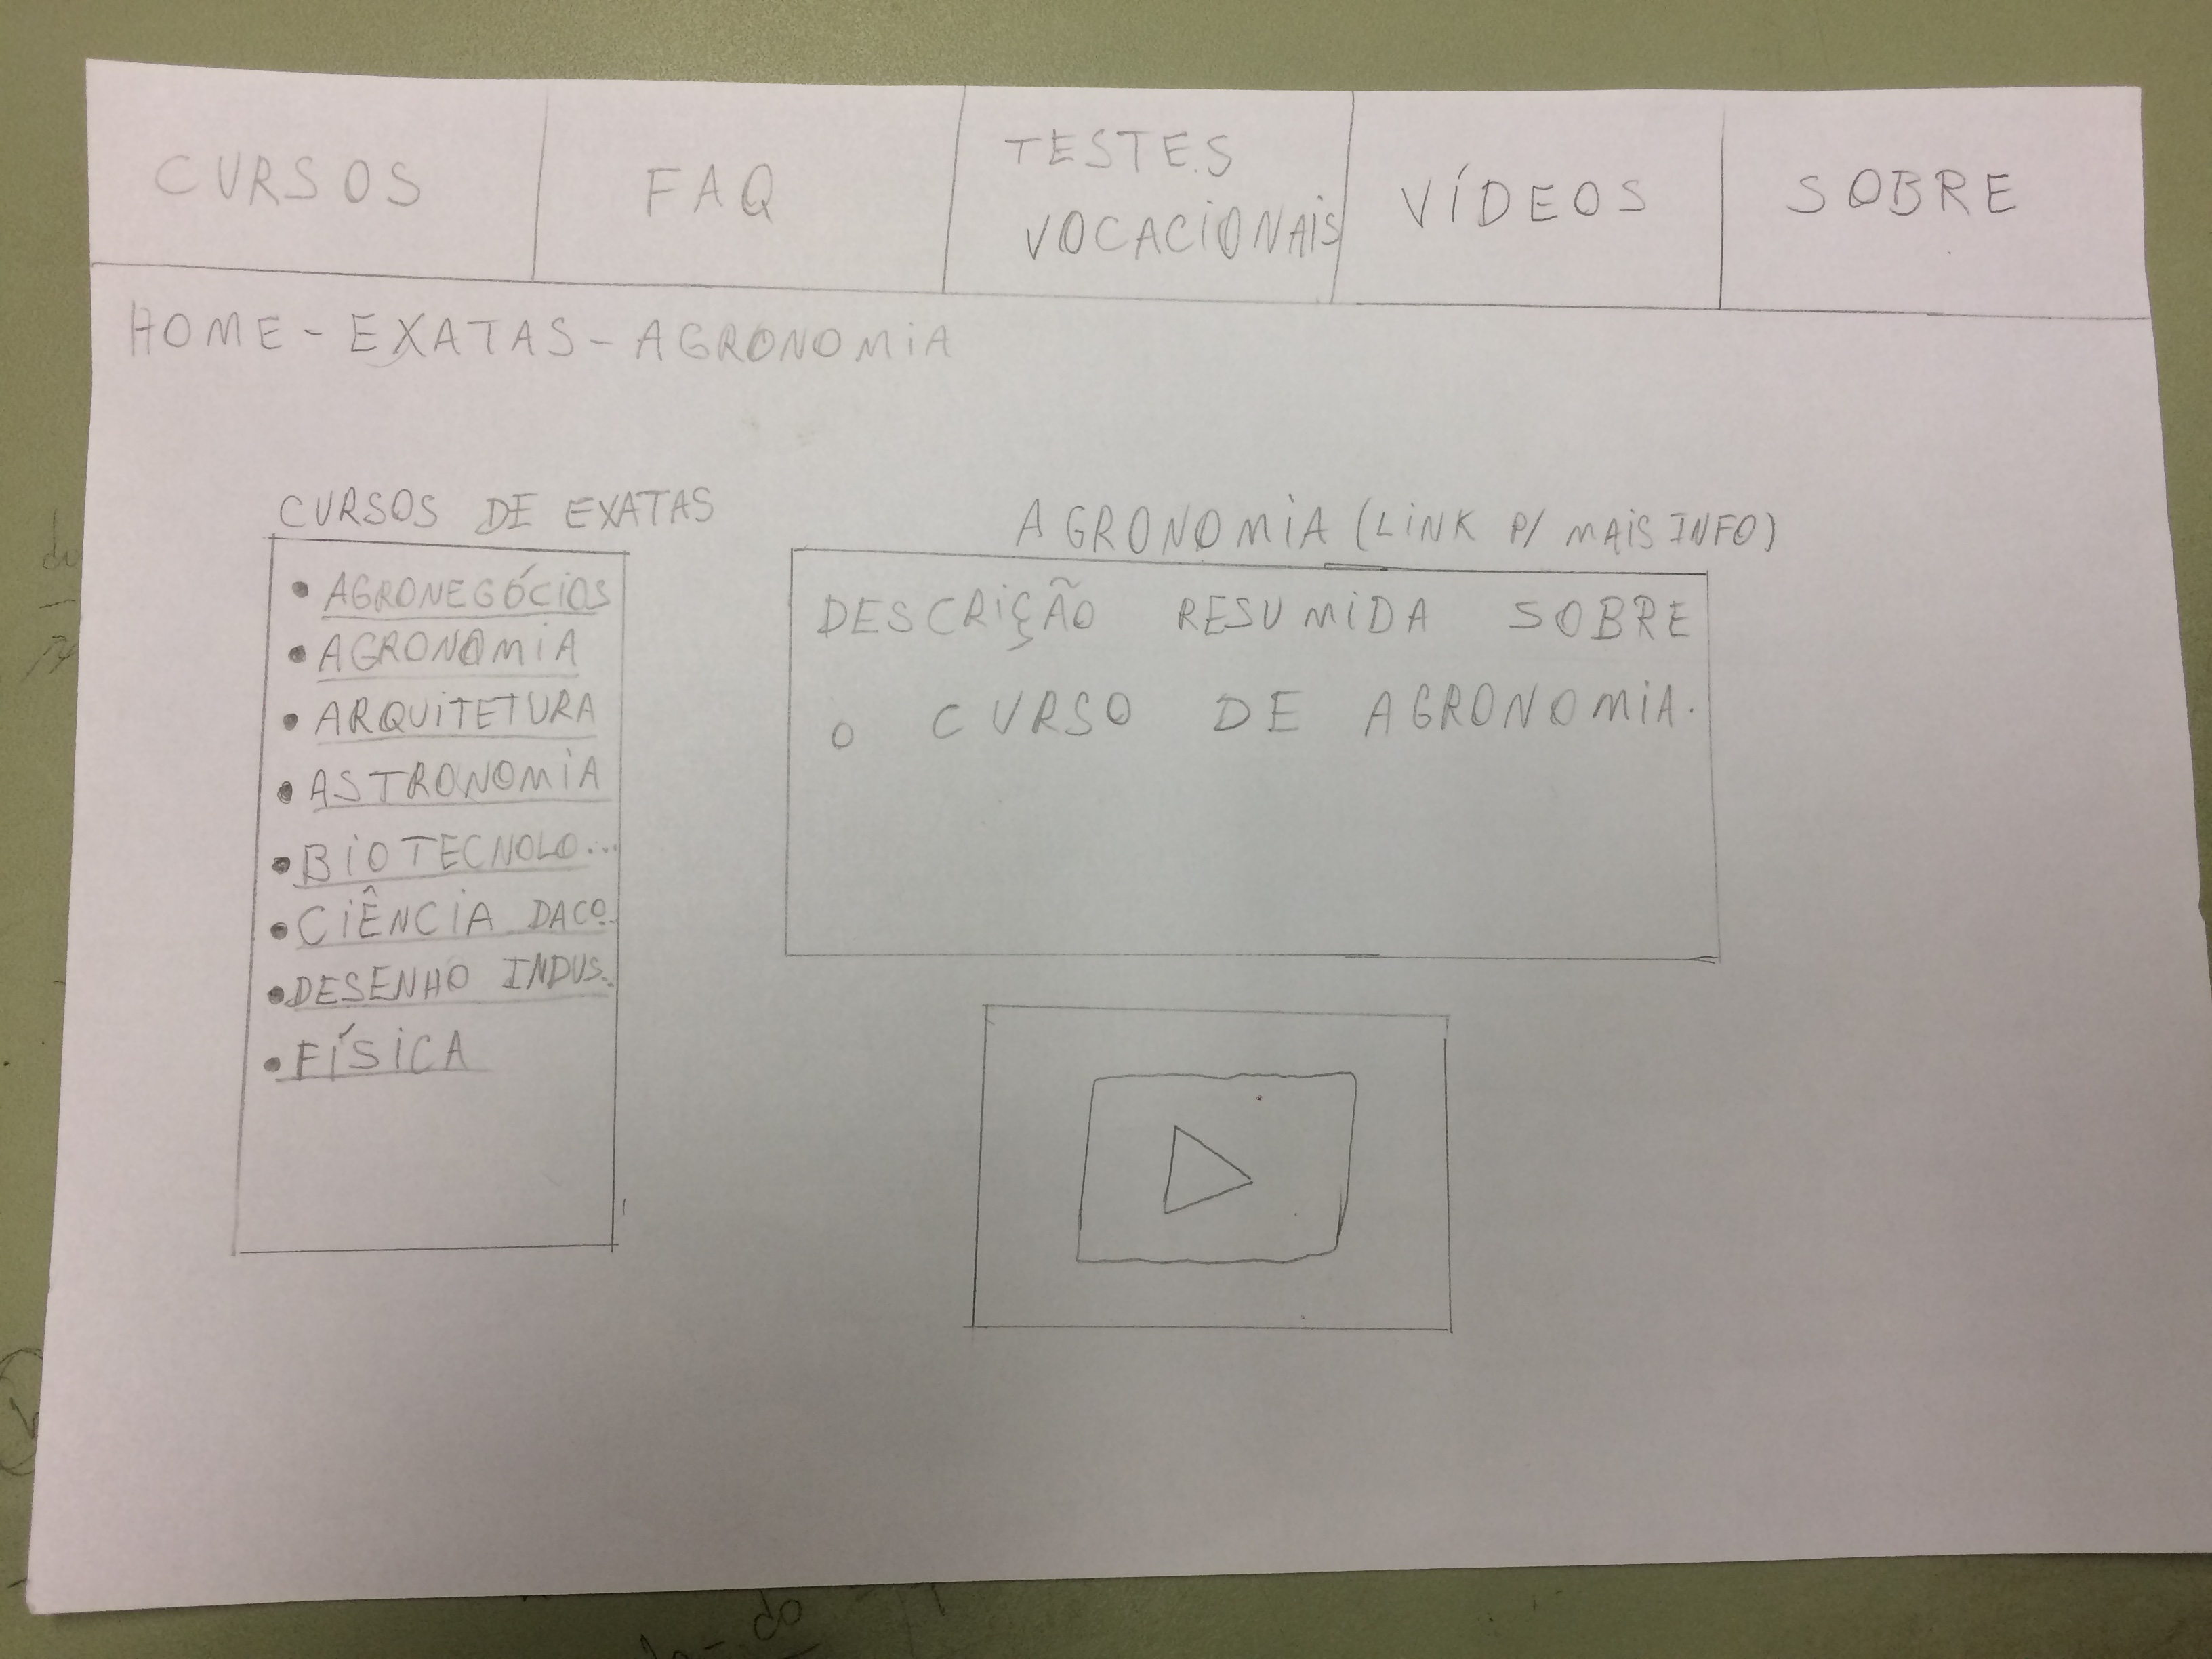 CURSOS
FAQ
TESTES
VOCACIONAIS
VÍDEOS
SOBRE
HOME - EXATAS - AGRONOMIA
CURSOS DE EXATAS
• AGRONEGÓCIOS
• AGRONOMIA
• ARQUITETURA
• ASTRONOMIA
• BIOTECNOLO...
• CIÊNCIA DA CO..
• DESENHO INDUS..
• FÍSICA
AGRONOMIA (LINK P/ MAIS INFO)
DESCRIÇÃO RESUMIDA SOBRE
O CURSO DE AGRONOMIA.
do